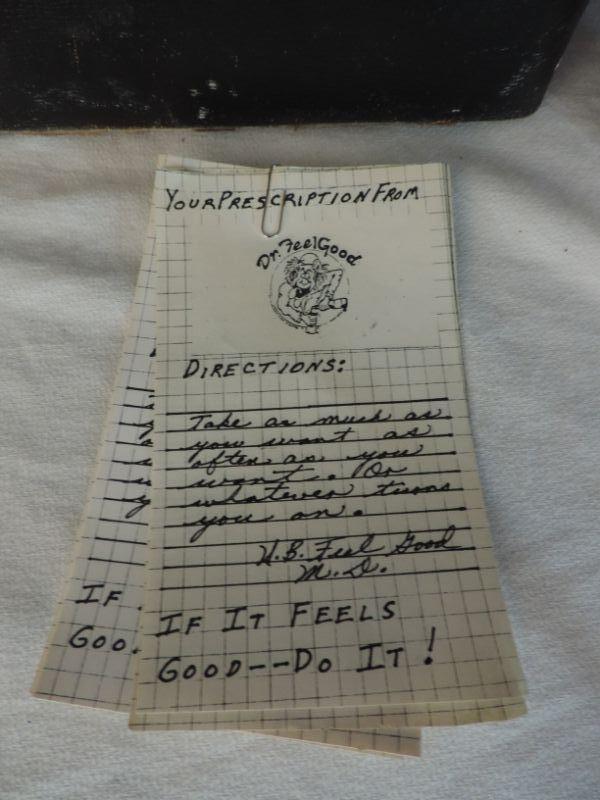 YOUR PRESCRIPTION FROM
Dr. FeelGood
DIRECTIONS:
Take as much as
you want as
often as you
want. Or
whatever turns
you on.
U.B. Feel Good
M.D.
IF IT FEELS
GOOD--DO IT!
IF
GOO